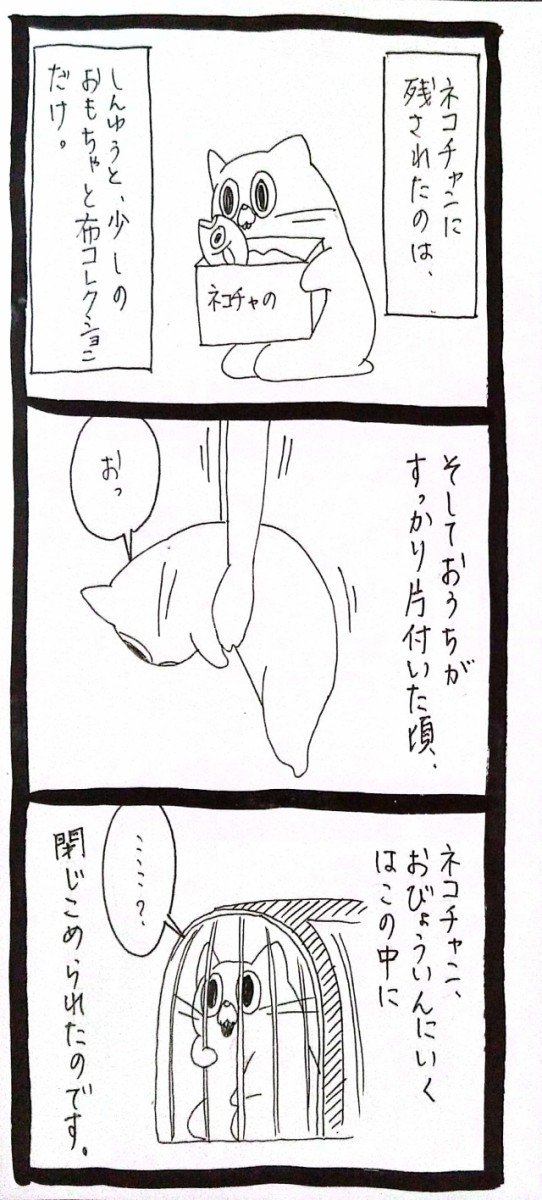 ネコチャンに
残されたのは、
しんゆうと、少しの
おもちゃと布コレクション
だけ。
ネコチャの
そしておうちが
すっかり片付いた頃、
おっ
ネコチャン、
おびょういんにいく
はこの中に
…?
閉じこめられたのです。